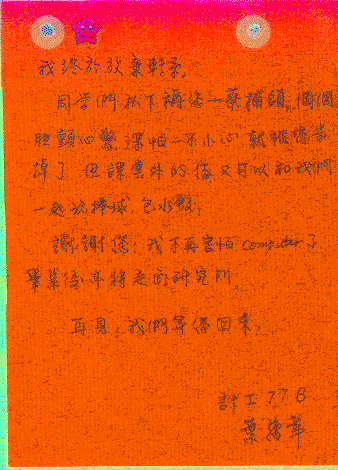 我終於放棄軒柔,
同學們私下稱您一葉捕頭,個個
膽顫心驚,深怕一不小心就被您當
掉了,但課堂外的您又可以和我們
一起玩棒球,包水餃,
謝謝您;我不再害怕computer了
畢業後亦將走向研究所。
再見。我們等您回來,
計工77B
葉